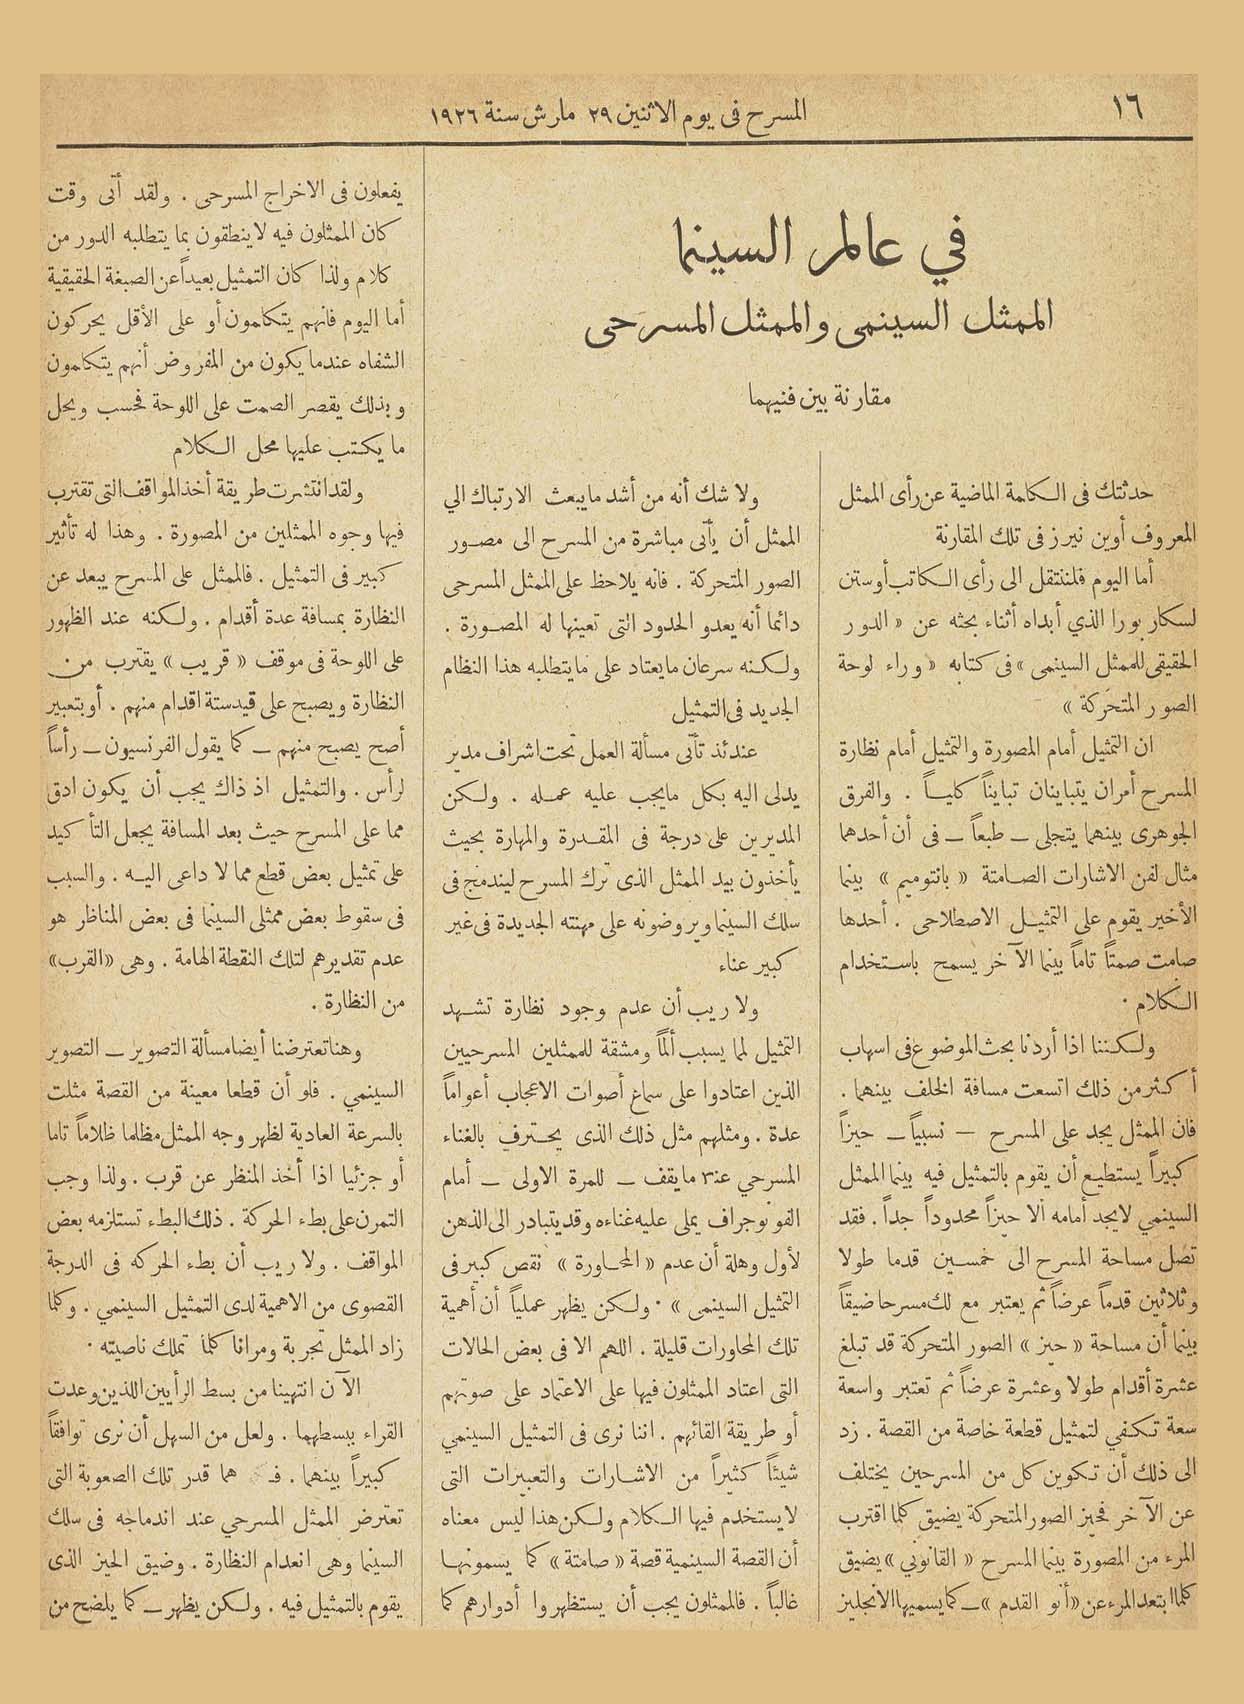 ١٦
المسرح فى يوم الاثنين ٢٩ مارش سنة ١٩٢٦
في عالم السينما
الممثل السينمى والممثل المسرحى
مقارنة بين فنيهما
حدثتك فى الكلمة الماضية عن رأى الممثل
المعروف أوين نيرز فى تلك المقارنة
أما اليوم فلننتقل الى رأى الكاتب أوستن
لسكاربورا الذي أبداه أثناء بحثه عن « الدور
الحقيقى للممثل السينمى » فى كتابه « وراء لوحة
الصور المتحركة »
ان التمثيل أمام المصورة والتمثيل أمام نظارة
المسرح أمران يتباينان تبايناً كلياً . والفرق
الجوهرى بينهما يتجلى — طبعاً — فى أن أحدهما
مثال لفن الاشارات الصامتة « بانتوميم » بينما
الأخير يقوم على التمثيل الاصطلاحى . أحدها
صامت صمتاً تاماً بينما الآخر يسمح باستخدام
الكلام ·
ولكننا اذا أردنا بحث الموضوع فى اسهاب
أكثر من ذلك اتسعت مسافة الخلف بينهما .
فان الممثل يجد على المسرح — نسبياً — حيزاً
كبيراً يستطيع أن يقوم بالتمثيل فيه بينما الممثل
السينمي لايجد أمامه الا حيزاً محدوداً جداً . فقد
تصل مساحة المسرح الى خمسين قدما طولا
وثلاثين قدماً عرضاً ثم يعتبر مع ذلك مسرحا ضيقاً
بينما أن مساحة « حيز » الصور المتحركة قد تبلغ
عشرة أقدام طولا وعشرة عرضاً ثم تعتبر واسعة
سعة تكفي لتمثيل قطعة خاصة من القصة . زد
الى ذلك أن تكوين كل من المسرحين يختلف
عن الآخر فحيز الصور المتحركة يضيق كلما اقترب
المرء من المصورة بينما المسرح « القانونى » يضيق
كلما ابتعد المرء عن « أنو القدم » — كما يسميها الانجليز
ولا شك أنه من أشد مايبعث الارتباك الي
الممثل أن يأتى مباشرة من المسرح الى مصور
الصور المتحركة . فانه يلاحظ على الممثل المسرحى
دائما أنه يعدو الحدود التى تعينها له المصورة .
ولكنه سرعان مايعتاد على مايتطلبه هذا النظام
الجديد فى التمثيل
عندئذ تأتى مسألة العمل تحت اشراف مدير
يدلى اليه بكل مايجب عليه عمله . ولكن
المديرين على درجة فى المقدرة والمهارة بحيث
يأخذون بيد الممثل الذى ترك المسرح ليندمج فى
سلك السينما ويروضونه على مهنته الجديدة فى غير
كبير عناء
ولا ريب أن عدم وجود نظارة تشهد
التمثيل لما يسبب ألماً ومشقة للممثلين المسرحيين
الذين اعتادوا على سماع أصوات الاعجاب أعواماً
عدة . ومثلهم مثل ذلك الذى يحترف بالغناء
المسرحي عند مايقف — للمرة الاولى — أمام
الفونوجراف يملى عليه غناءه وقد يتبادر الى الذهن
لأول وهلة أن عدم « المحاورة » نقص كبير فى
التمثيل السينمى » · ولكن يظهر عملياً أن أهمية
تلك المحاورات قليلة . اللهم الا فى بعض الحالات
التى اعتاد الممثلون فيها على الاعتماد على صوتهم
أو طريقة القائهم . اننا نرى فى التمثيل السينمي
شيئاً كثيراً من الاشارات والتعبيرات التى
لايستخدم فيها الكلام ولكن هذا ليس معناه
أن القصة السينمية قصة « صامتة » كما يسمونها
غالباً . فالممثلون يجب أن يستظهروا أدوارهم كما
يفعلون فى الاخراج المسرحى . ولقد أتى وقت
كان الممثلون فيه لاينطقون بما يتطلبه الدور من
كلام ولذا كان التمثيل بعيداً عن الصبغة الحقيقية
أما اليوم فانهم يتكلمون أو على الأقل يحركون
الشفاه عندما يكون من المفروض أنهم يتكلمون
وبذلك يقصر الصمت على اللوحة فحسب ويحل
ما يكتب عليها محل الكلام
ولقد انتشرت طريقة أخذ المواقف التى تقترب
فيها وجوه الممثلين من المصورة . وهذا له تأثير
كبير فى التمثيل . فالممثل على المسرح يبعد عن
النظارة بمسافة عدة أقدام . ولكنه عند الظهور
على اللوحة فى موقف « قريب » يقترب من
النظارة ويصبح على قيد ستة اقدام منهم . أو بتعبير
أصح يصبح منهم — كما يقول الفرنسيون — رأساً
لرأس . والتمثيل اذ ذاك يجب أن يكون ادق
مما على المسرح حيث بعد المسافة يجعل التأكيد
على تمثيل بعض قطع مما لا داعى اليه . والسبب
فى سقوط بعض ممثلى السينما فى بعض المناظر هو
عدم تقديرهم لتلك النقطة الهامة . وهى «القرب»
من النظارة .
وهنا تعترضنا أيضا مسألة التصوير — التصوير
السينمي . فلو أن قطعا معينة من القصة مثلت
بالسرعة العادية لظهر وجه الممثل مظلما ظلاماً تاما
أو جزئيا اذا أخذ المنظر عن قرب . ولذا وجب
التمرن على بطء الحركة . ذلك البطء تستلزمه بعض
المواقف . ولا ريب أن بطء الحركه فى الدرجة
القصوى من الاهمية لدى التمثيل السينمي . وكلما
زاد الممثل تجربة ومرانا كلما تملك ناصيته ·
الآن انتهينا من بسط الرأيين اللذين وعدت
القراء ببسطهما . ولعل من السهل أن نرى توافقاً
كبيراً بينهما . هما قدر تلك الصعوبة التى
تعترض الممثل المسرحي عند اندماجه فى سلك
السينما وهى انعدام النظارة . وضيق الحيز الذى
يقوم بالتمثيل فيه . ولكن يظهر — كما يلضح من